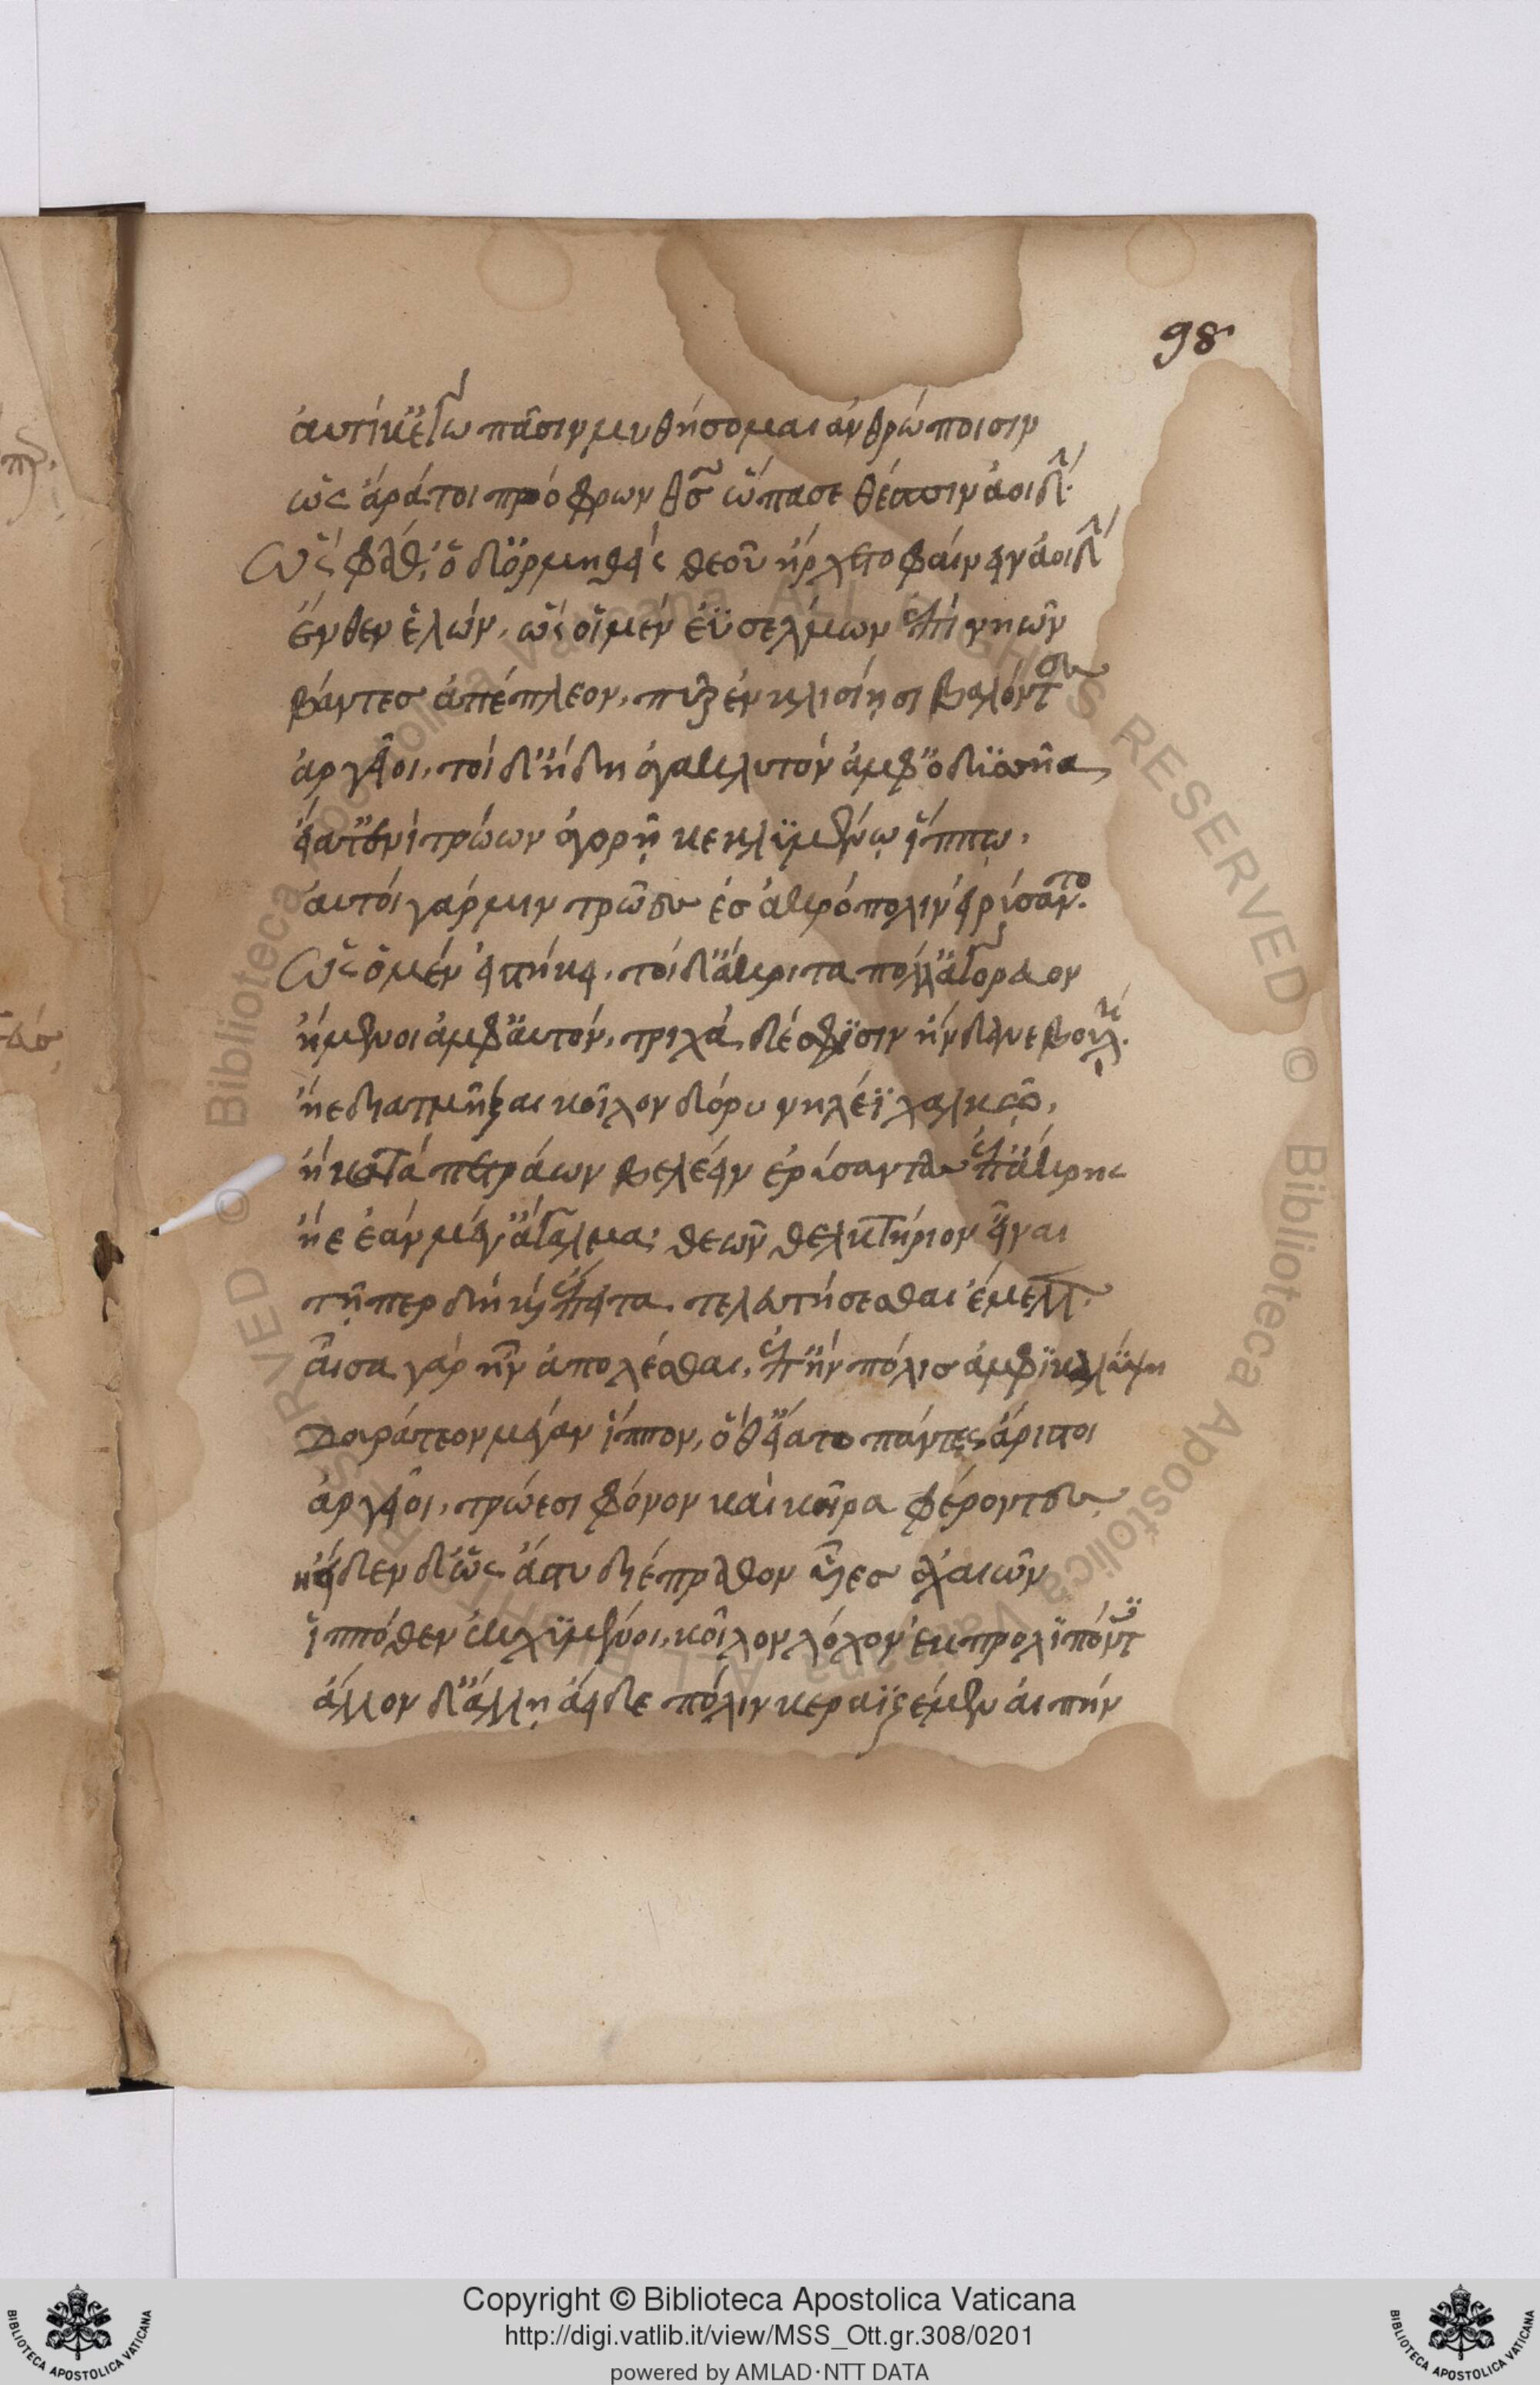 98
αὐτίκ' ἐγὼ πᾶσιν μυθήσομαι ἀνθρώποισιν
ὡς ἄρα τοι πρόφρων θεὸς ὤπασε θέσπιν ἀοιδήν.
Ὣς φάθ', ὁ δ' ὁρμηθεὶς θεοῦ ἤρχετο φαῖν' ἀοιδὴν
ἔνθεν ἑλὼν, ὡς οἱ μὲν ἐϋσέλμων ἐπὶ νηῶν
βάντες ἀπέπλεον, πῦρ ἐν κλισίῃσι βαλόντες
ἀργεῖοι, τοὶ δ' ἤδη ἀγακλυτὸν ἀμφ' ὀδυσῆα
εἵατ' ἐνὶ τρώων ἀγορῇ κεκαλυμμένῳ ἵππῳ.
αὐτοὶ γάρ μιν τρῶες ἐς ἀκρόπολιν ἐρύσαντο.
Ὣς ὁ μὲν εἱστήκει, τοὶ δ' ἄκριτα πόλλ' ἀγόρευον
ἥμενοι ἀμφ' αὐτόν, τρίχα δέ σφισιν ἥνδανε βουλή.
ἠὲ διατμῆξαι κοῖλον δόρυ νηλέϊ χαλκῷ,
ἢ κατὰ πετράων βαλέειν ἐρύσαντας ἐπ' ἄκρης
ἠὲ ἐᾶν μέγ' ἄγαλμα θεῶν θελκτήριον εἶναι
τῇ περ δὴ καὶ ἔπειτα τελευτήσεσθαι ἔμελλεν.
αἶσα γὰρ ἦν ἀπολέσθαι, ἐπὴν πόλις ἀμφικαλύψῃ
δουράτεον μέγαν ἵππον, ὅθ' εἵατο πάντες ἄριστοι
ἀργεῖοι, τρώεσι φόνον καὶ κῆρα φέροντες.
ἤειδεν δ' ὡς ἄστυ διέπραθον υἷες ἀχαιῶν
ἱππόθεν ἐκχύμενοι, κοῖλον λόχον ἐκπρολιπόντες
ἄλλον δ' ἄλλῃ ἄειδε πόλιν κεραϊζέμεν αἰπήν
Copyright © Biblioteca Apostolica Vaticana
http://digi.vatlib.it/view/MSS_Ott.gr.308/0201
powered by AMLAD·NTT DATA